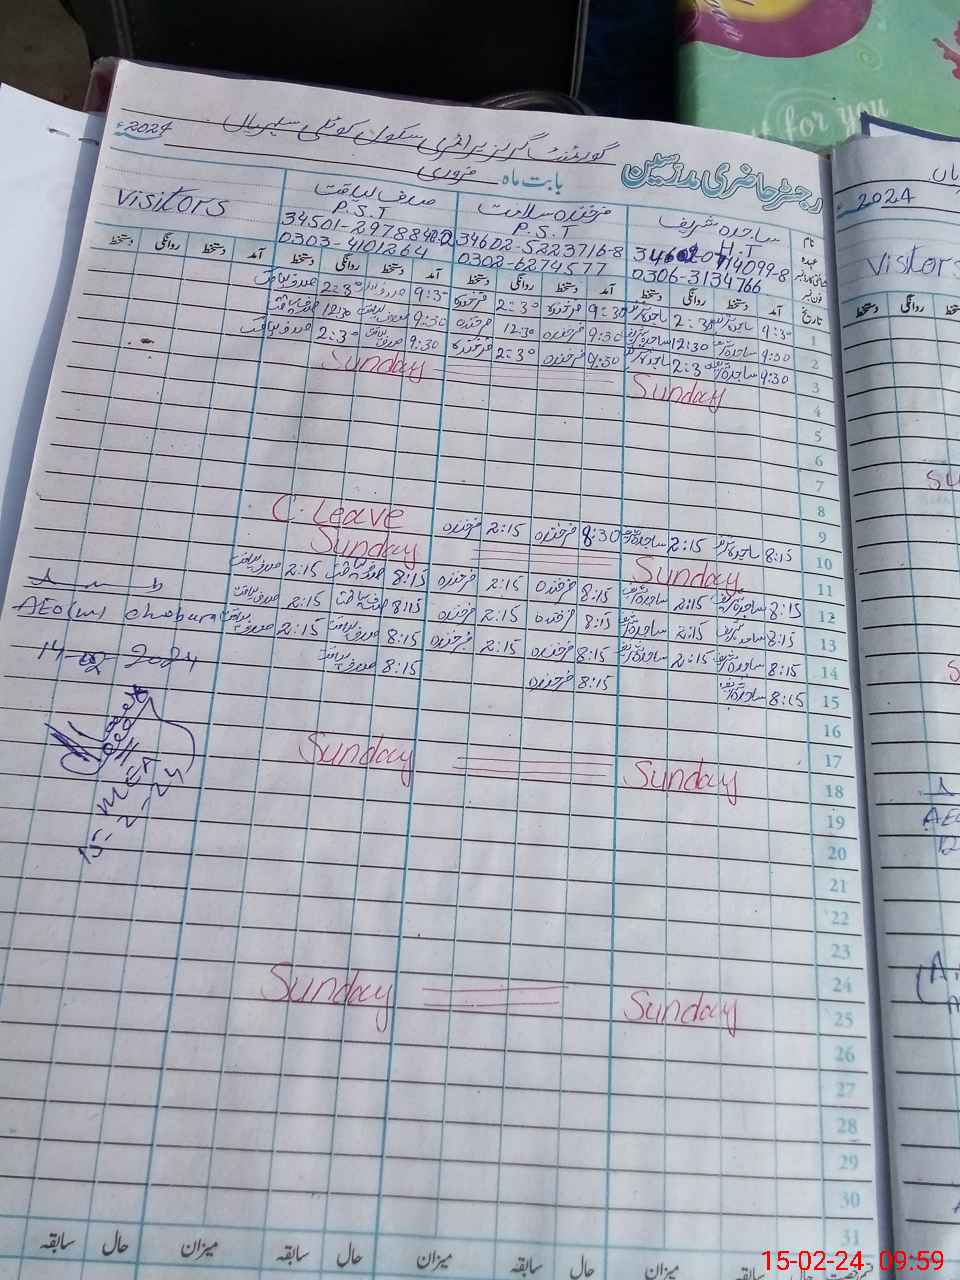 رجسٹر حاضری مدرسین گورنمنٹ گرلز پرائمری سکول کوٹلی
بابت ماہ فروری 2024ء
نام ساجدہ شریف فرخندہ سلامت صدف لیاقت Visitors
عہدہ H.T P.S.T P.S.T
34602-5223716-8
فون نمبر 0306-3134766 0302-6274577 0303-4101264
تاریخ آمد دستخط روانگی دستخط آمد دستخط روانگی دستخط آمد دستخط روانگی دستخط آمد دستخط روانگی دستخط
1 9:30 ساجدہ شریف 2:30 ساجدہ شریف 9:30 فرخندہ 2:30 فرخندہ 9:30 صدف لیاقت 2:30 صدف لیاقت
2 9:30 ساجدہ شریف 12:30 ساجدہ شریف 9:30 فرخندہ 12:30 فرخندہ 9:30 صدف لیاقت 12:30 صدف لیاقت
3 9:30 ساجدہ شریف 2:30 ساجدہ شریف 9:30 فرخندہ 2:30 فرخندہ 9:30 صدف لیاقت 2:30 صدف لیاقت
4 Sunday Sunday
5
6
7
8
9 8:15 ساجدہ شریف 2:15 ساجدہ شریف 8:30 فرخندہ 2:15 فرخندہ C. Leave
10
11 Sunday Sunday
12 8:15 ساجدہ شریف 2:15 ساجدہ شریف 8:15 فرخندہ 2:15 فرخندہ 8:15 صدف لیاقت 2:15 صدف لیاقت
13 8:15 ساجدہ شریف 2:15 ساجدہ شریف 8:15 فرخندہ 2:15 فرخندہ 8:15 صدف لیاقت 2:15 صدف لیاقت
14 8:15 ساجدہ شریف 2:15 ساجدہ شریف 8:15 فرخندہ 2:15 فرخندہ 8:15 صدف لیاقت 2:15 صدف لیاقت
15 8:15 ساجدہ شریف 8:15 فرخندہ 8:15 صدف لیاقت
AEO(w)
14-02-2024
MEA
15-2-24
16
17
18 Sunday Sunday
19
20
21
22
23
24
25 Sunday Sunday
26
27
28
29
30
31
میزان سابقہ حال میزان سابقہ حال میزان سابقہ حال
2024
Visitors
دستخط روانگی
for you
15-02-24 09:59